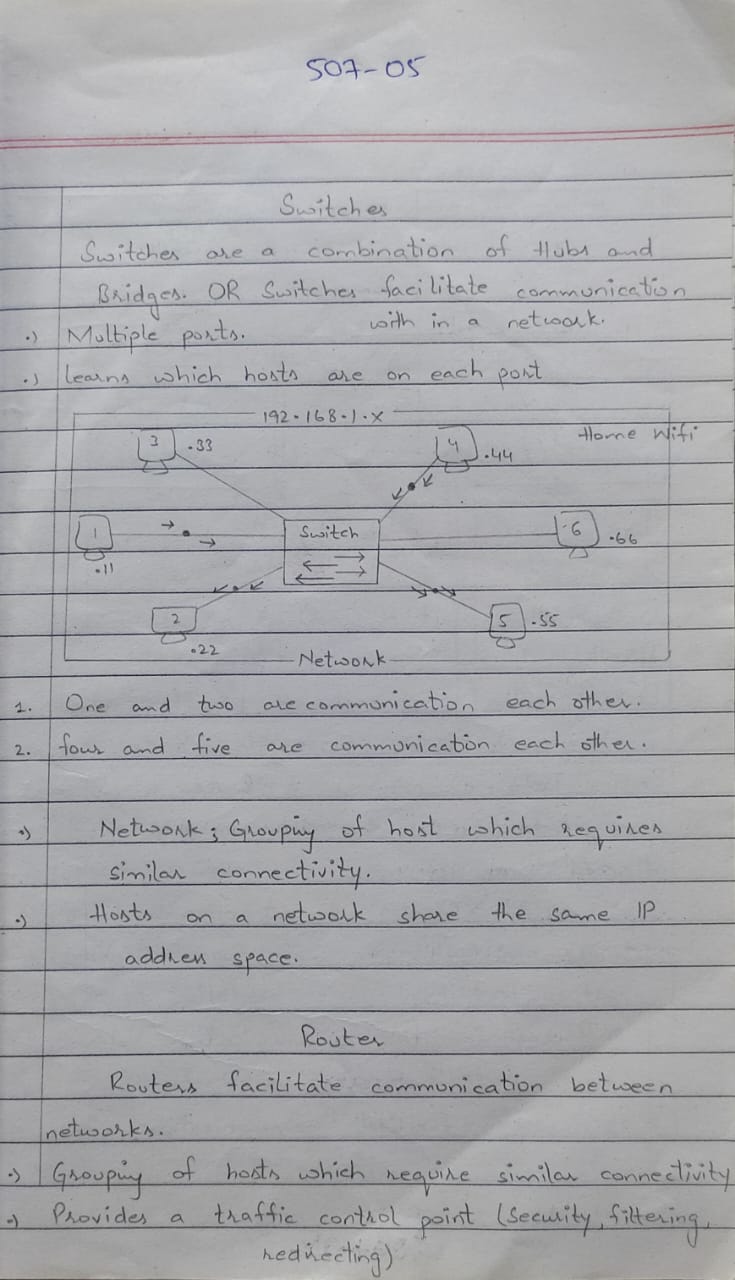 507-05
Switches
Switches are a combination of Hubs and
Bridges. OR Switches facilitate communication
with in a network.
•) Multiple ports.
•) learns which hosts are on each port
192.168.1.x
Home Wifi
3 .33
4 .44
1 .11
Switch
6 .66
2 .22
5 .55
Network
1. One and two are communication each other.
2. four and five are communication each other.
•) Network; Grouping of host which requires
similar connectivity.
•) Hosts on a network share the same IP
address space.
Router
Routers facilitate communication between
networks.
•) Grouping of hosts which require similar connectivity
•) Provides a traffic control point (Security, filtering,
redirecting)